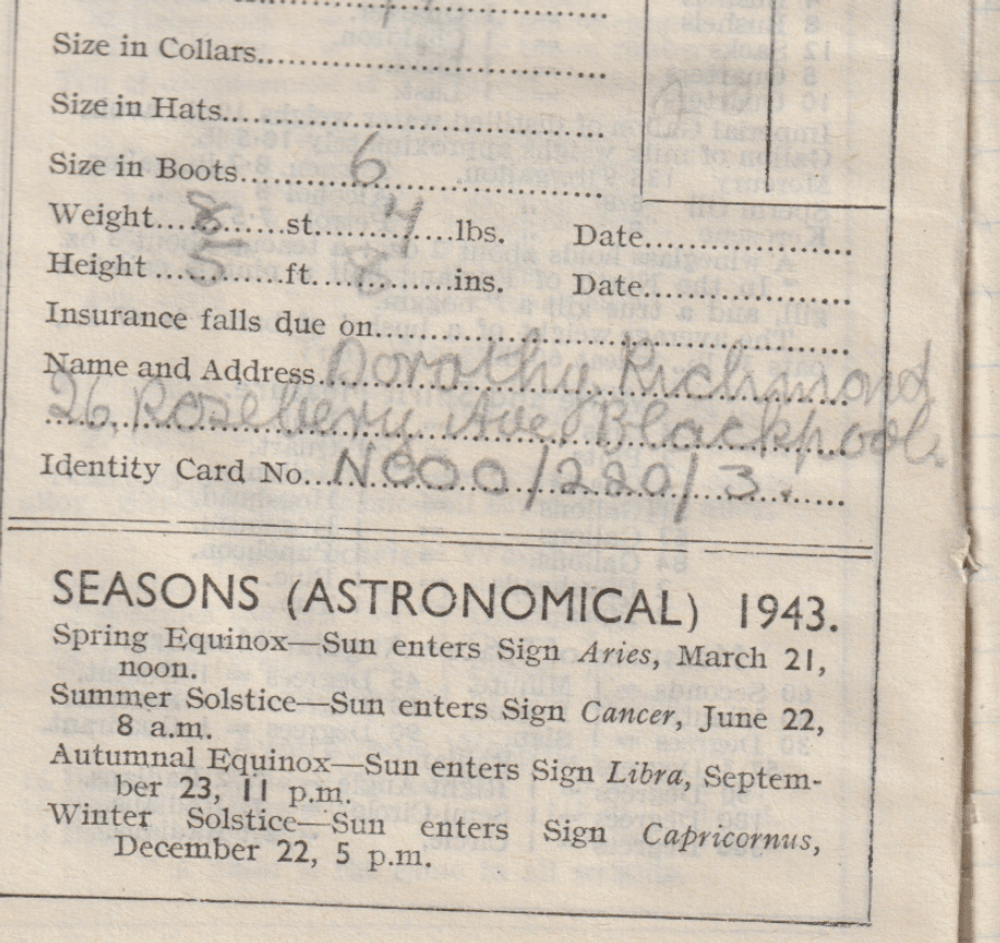 Size in Collars
Size in Hats
Size in Boots 6
Weight 8 st. 4 lbs. Date
Height 5 ft. 8 ins. Date
Insurance falls due on
Name and Address Dorothy Richmond
26, Rosebery Ave Blackpool.
Identity Card No. NCOO/220/3.
SEASONS (ASTRONOMICAL) 1943.
Spring Equinox—Sun enters Sign Aries, March 21,
noon.
Summer Solstice—Sun enters Sign Cancer, June 22,
8 a.m.
Autumnal Equinox—Sun enters Sign Libra, Septem-
ber 23, 11 p.m.
Winter Solstice—Sun enters Sign Capricornus,
December 22, 5 p.m.